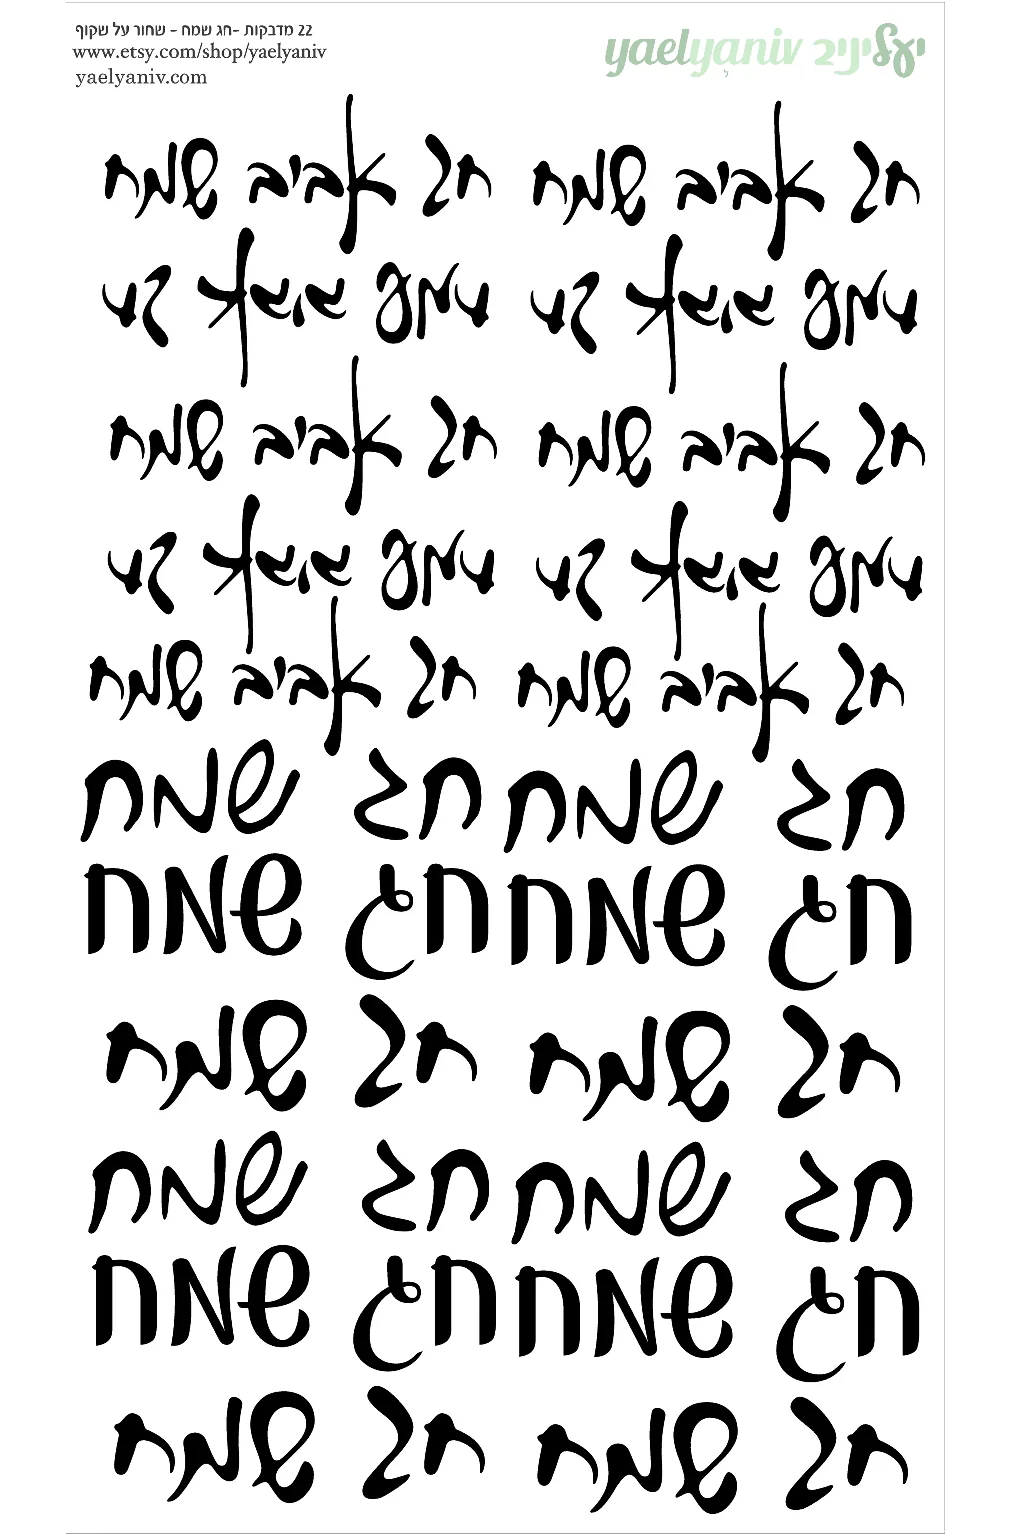 22 מדבקות -חג שמח - שחור על שקוף
www.etsy.com/shop/yaelyaniv
yaelyaniv.com
yaelyaniv יעל יניב
חג אביב שמח חג אביב שמח
חג אביב שמח חג אביב שמח
חג אביב שמח חג אביב שמח
חג אביב שמח חג אביב שמח
חג אביב שמח חג אביב שמח
חג שמח חג שמח
חג שמח חג שמח
חג שמח חג שמח
חג שמח חג שמח
חג שמח חג שמח
חג שמח חג שמח